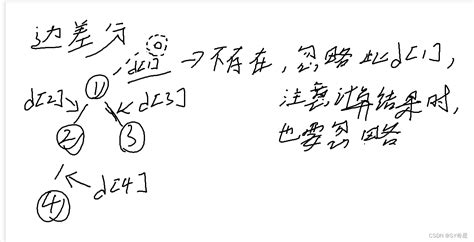 边差分
0
d[1] → 不存在, 忽略此d[1],
1
d[2] d[3] 注意计算结果时,
2 3 也要忽略
d[4]
4
CSDN @SY奇星